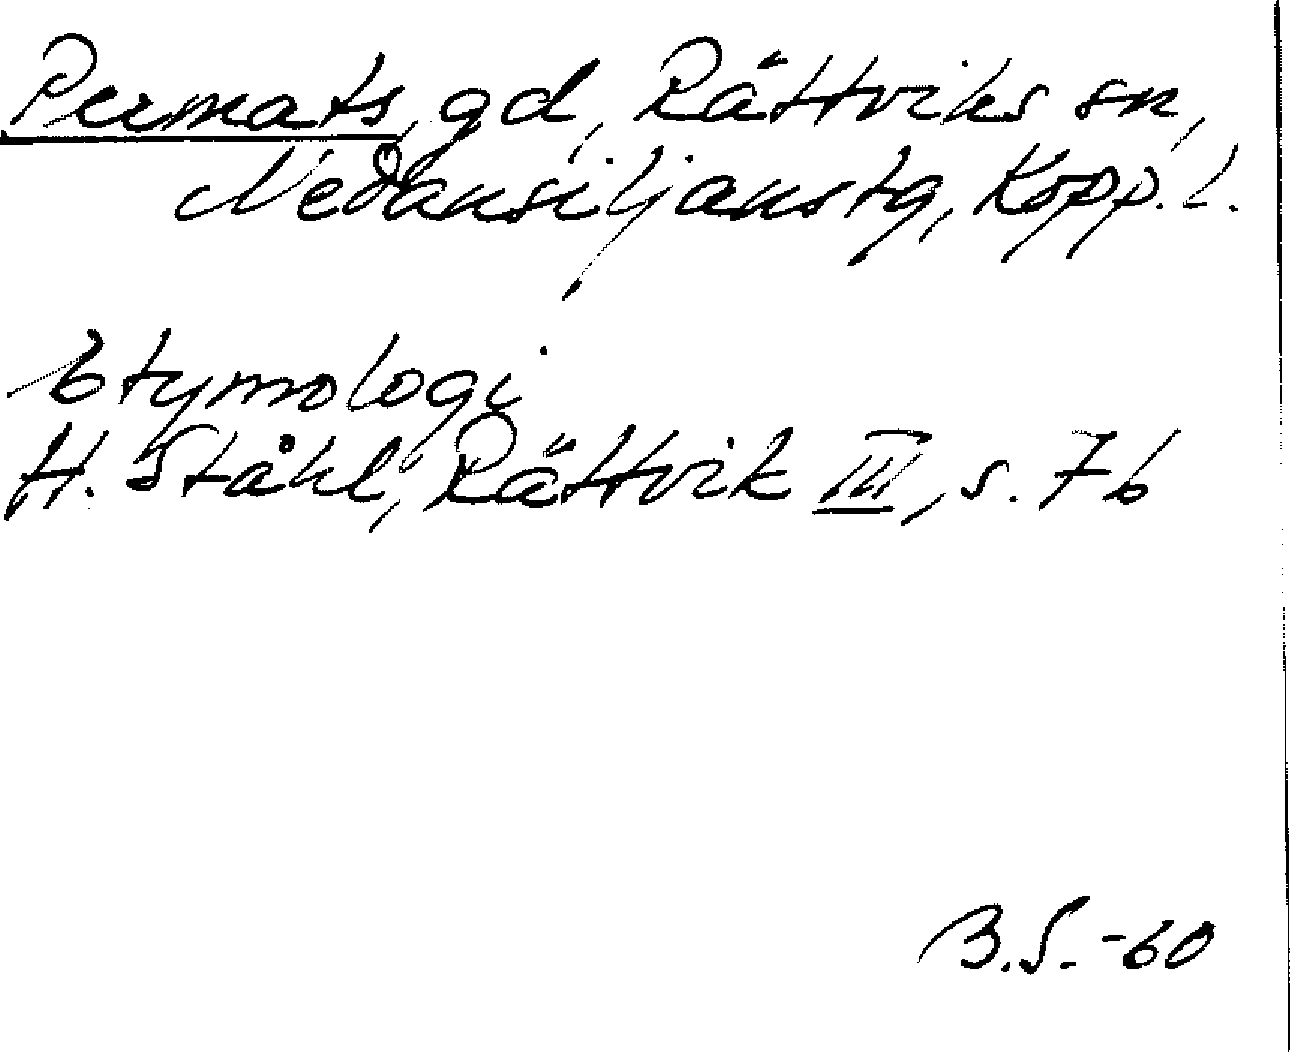 Permats, gd, Rättviks sn,
Nedansiljanstg, Kopp. l.
Etymologi
H. Ståhl, Rättvik III, s. 76
B.S. -60